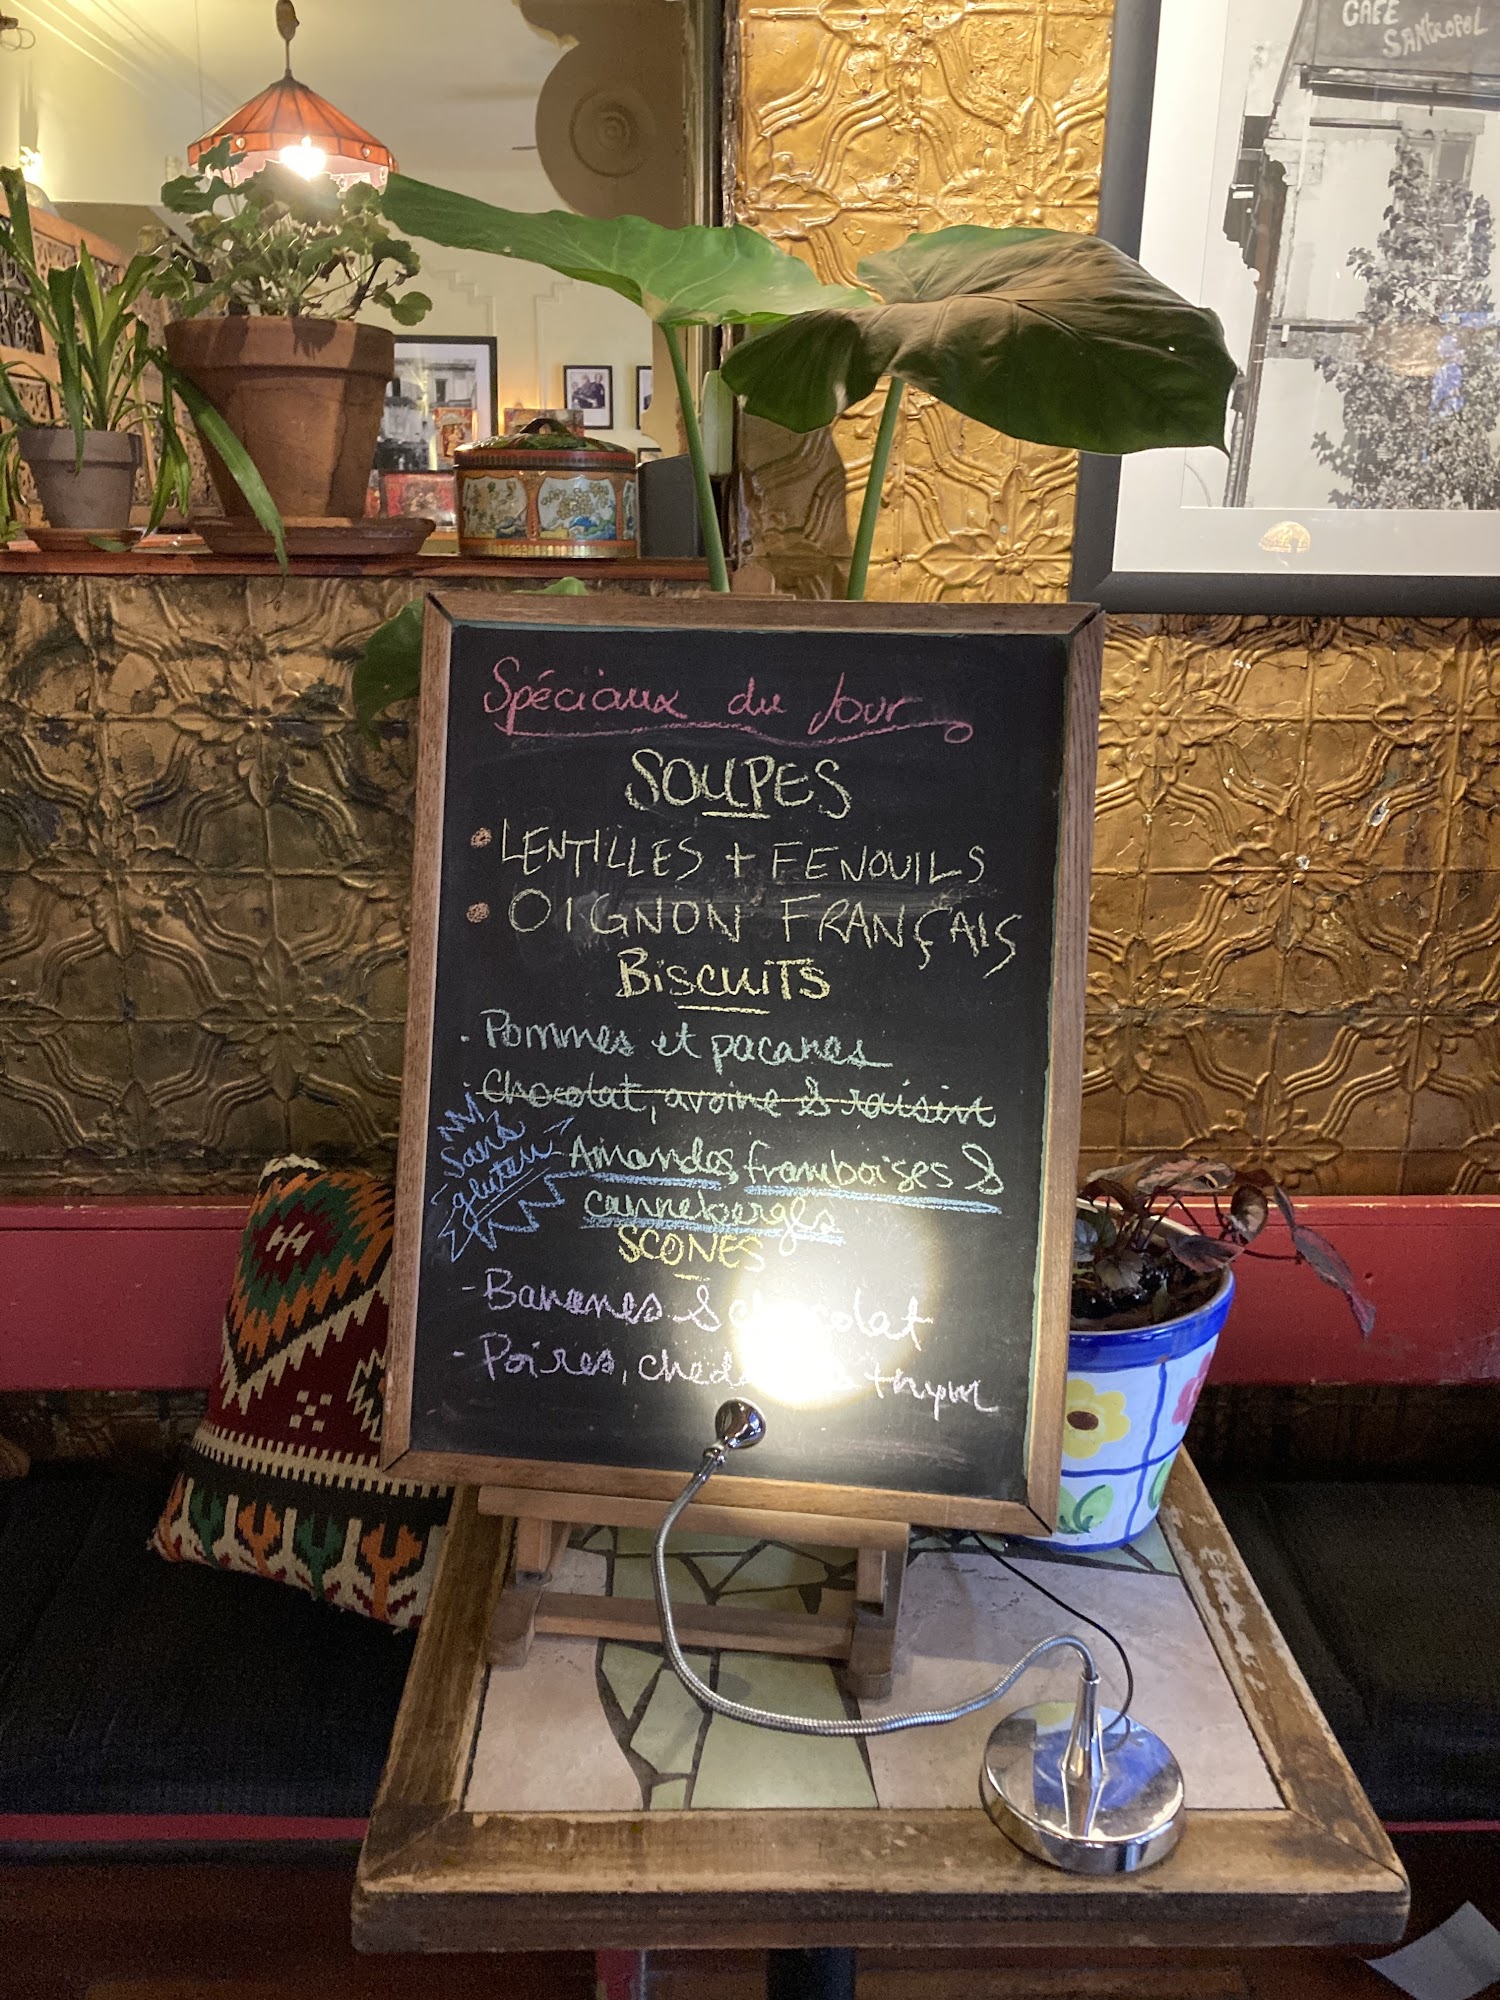 CAFE
SANTROPOL
Spéciaux du Jour
SOUPES
• LENTILLES + FENOUILS
• OIGNON FRANÇAIS
BISCUITS
. Pommes et pacanes
. Chocolat, avoine & raisin
Sans
gluten
Amandes, framboises &
canneberges
SCONES
- Bananes & chocolat
- Poires, thym